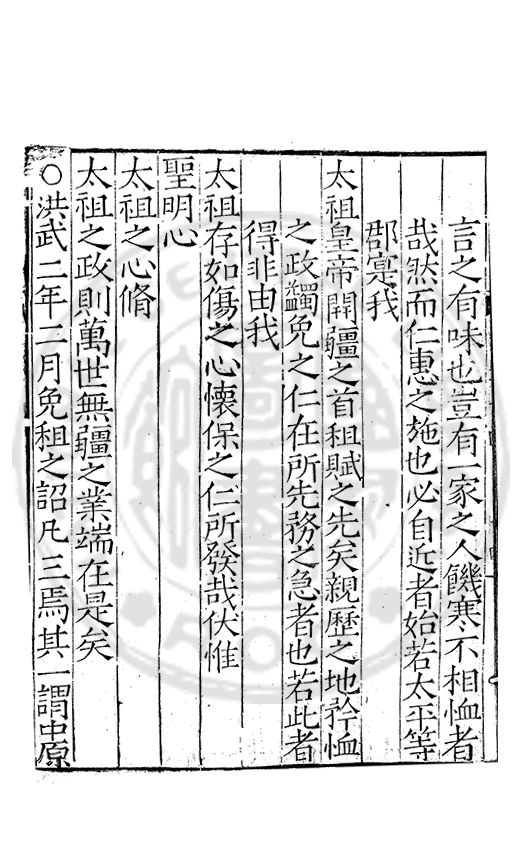 言之有味也豈有一家之人饑寒不相恤者
哉然而仁惠之施也必自近者始若太平等
郡寔我
太祖皇帝開疆之首租賦之先矣親歷之地矜恤
之政蠲免之仁在所先務之急者也若此者
得非由我
太祖存如傷之心懷保之仁所發哉伏惟
聖明心
太祖之心脩
太祖之政則萬世無疆之業端在是矣
○洪武二年二月免租之詔凡三焉其一謂中原